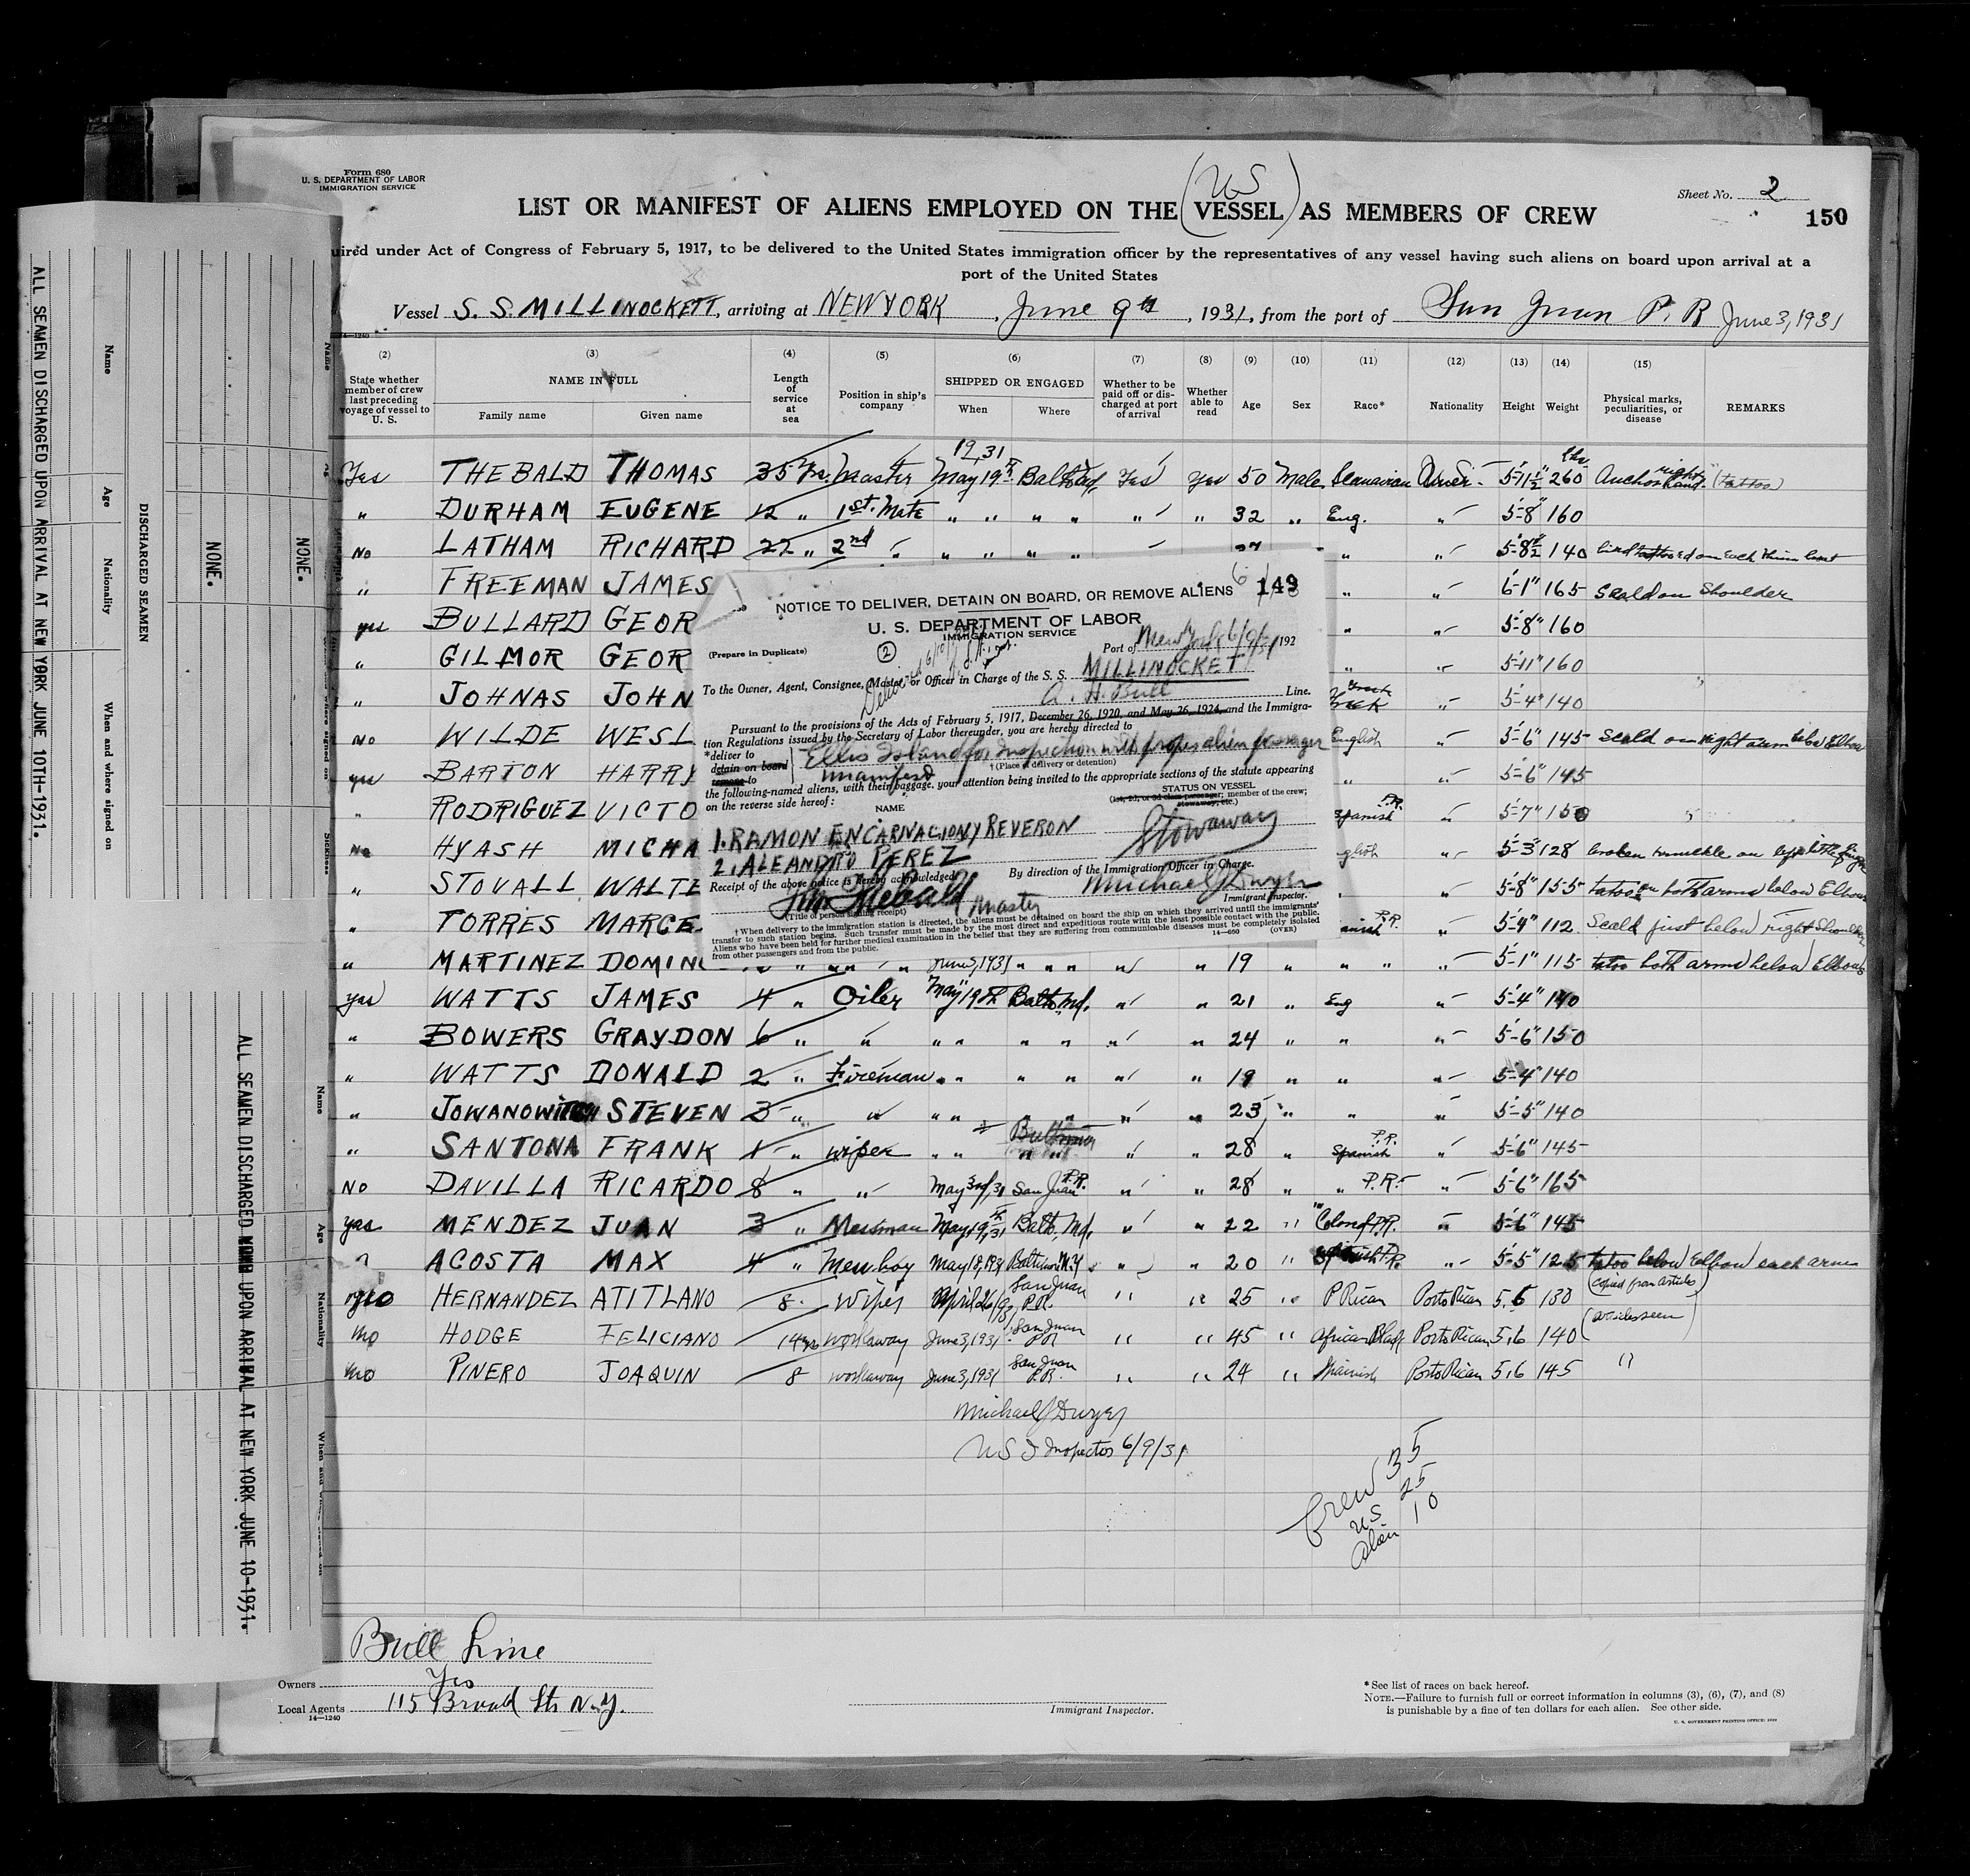 Form 680
U. S. DEPARTMENT OF LABOR
IMMIGRATION SERVICE
(US
Sheet No. 2
LIST OR MANIFEST OF ALIENS EMPLOYED ON THE (VESSEL) AS MEMBERS OF CREW
150
uired under Act of Congress of February 5, 1917, to be delivered to the United States immigration officer by the representatives of any vessel having such aliens on board upon arrival at a
port of the United States
Vessel S. S. MILLINOCKETT, arriving at NEW YORK, June 9th, 1931, from the port of San Juan P. R June 3, 1931
14-1240
(2) (3) (4) (5) (6) (7) (8) (9) (10) (11) (12) (13) (14) (15)
State whether member of crew last preceding voyage of vessel to U. S.
NAME IN FULL
Family name
Given name
Length of service at sea
Position in ship's company
SHIPPED OR ENGAGED
When
Where
Whether to be paid off or discharged at port of arrival
Whether able to read
Age
Sex
Race*
Nationality
Height
Weight
Physical marks, peculiarities, or disease
REMARKS
19,31
lbs
Yes THEBALD THOMAS 35 Yrs. Master May 19th Balto Md. Yes Yes 50 Male 5-11½" 260 Anchor right hand. (tattoo)
" DURHAM EUGENE 12 " 1st. Mate " " " " " " 32 " Eng. " 5-8" 160
No LATHAM RICHARD 22 " 2nd " " " " " " 5-8½ 140
" FREEMAN JAMES " " 6-1" 165 Scald on Shoulder
yes BULLARD GEOR " " 5-8" 160
" GILMOR GEOR " " 5-11" 160
" JOHNAS JOHN Greek " 5-4" 140
No WILDE WESL English " 5-6" 145 Scald on right arm below Elbow
yes BARTON HARRY " " 5-6" 145
" RODRIGUEZ VICTO Spanish P.R. " 5-7" 150
No HYASH MICHA glish " 5-3" 128 broken knuckle on left little finger
" STOVALL WALTE " 5-8" 155 tatoo on both arms below Elbow
" TORRES MARCE anish P.R. " 5-4" 112 Scald just below right Shoulder
" MARTINEZ DOMIN " " " June 3, 1931 " " " " " 19 " " " " 5-1" 115 tatoo both arms below Elbows
yes WATTS JAMES 4 " Oiler May 19th Balto, Md. " " 21 " Eng " 5-4" 140
" BOWERS GRAYDON 6 " " " " " " " " 24 " " " 5-6" 150
" WATTS DONALD 2 " Fireman " " " " " " 19 " " " 5-4" 140
" JOWANOWITCH STEVEN 3 " " " " " " " " 23 " " " 5-5" 140
" SANTONA FRANK 1 " wiper " " " " " " 28 " Spanish P.R. " 5-6" 145
No DAVILLA RICARDO 8 " " May 3rd, 31 San Juan P.R. " " 28 " " P.R. 5-6" 165
yes MENDEZ JUAN 3 " Messman May 19th, 31 Balto, Md. " " 22 " Colored P.R. " 5-6" 145
" ACOSTA MAX 4 " Messboy May 18, 1931 " " 20 " P.R. " 5-5" 125 tatoo below Elbow each arm
no HERNANDEZ ATITLANO 8 Wiper April 26/931 San Juan P.R. " " 25 " P Rican Porto Rican 5.6 130 (copied from articles)
no HODGE FELICIANO 14 yrs workaway June 3, 1931 San Juan P.R. " " 45 " African Black Porto Rican 5.6 140
no PINERO JOAQUIN 8 workaway June 3, 1931 San Juan P.R. " " 24 " Spanish Porto Rican 5.6 145 "
Michael J Dwyer
US I Inspector 6/9/31
Crew 35
US 25
Alien 10
NOTICE TO DELIVER, DETAIN ON BOARD, OR REMOVE ALIENS
149
U. S. DEPARTMENT OF LABOR
IMMIGRATION SERVICE
(Prepare in Duplicate)
2
Port of New York, 6/9/31 192
To the Owner, Agent, Consignee, Master, or Officer in Charge of the S. S. MILLINOCKET
A. H. Bull Line.
Pursuant to the provisions of the Acts of February 5, 1917, December 26, 1920, and May 26, 1924, and the Immigra-
tion Regulations issued by the Secretary of Labor thereunder, you are hereby directed to
*deliver to
detain on board
remove to
Ellis Island for Inspection with proper alien passenger
manifest
†(Place of delivery or detention)
the following-named aliens, with their baggage, your attention being invited to the appropriate sections of the statute appearing
on the reverse side hereof:
NAME
STATUS ON VESSEL
(1st, 2d, or 3d class passenger; member of the crew;
stowaway, etc.)
1. RAMON ENCARNACION Y REVERON
Stowaway
2. ALEANDRO PEREZ
By direction of the Immigration Officer in Charge.
Receipt of the above notice is hereby acknowledged
Michael J Dwyer
Immigrant Inspector.
Thos Thebald Master
(Title of person signing receipt)
†When delivery to the immigration station is directed, the aliens must be detained on board the ship on which they arrived until the immigrants'
transfer to such station begins. Such transfer must be made by the most direct and expeditious route with the least possible contact with the public.
Aliens who have been held for further medical examination in the belief that they are suffering from communicable diseases must be completely isolated
from other passengers and from the public.
14-650
(OVER)
Bull Line
Owners Yes
Local Agents 115 Broad St. N.Y.
14-1240
Immigrant Inspector.
*See list of races on back hereof.
NOTE.—Failure to furnish full or correct information in columns (3), (6), (7), and (8)
is punishable by a fine of ten dollars for each alien. See other side.
U. S. GOVERNMENT PRINTING OFFICE
ALL SEAMEN DISCHARGED UPON ARRIVAL AT NEW YORK JUNE 10TH-1931.
Name
Age
Nationality
When and where signed on
DISCHARGED SEAMEN
NONE.
NONE.
ALL SEAMEN DISCHARGED UPON ARRIVAL AT NEW YORK JUNE 10-1931.
Sickness
Name
Age
Nationality